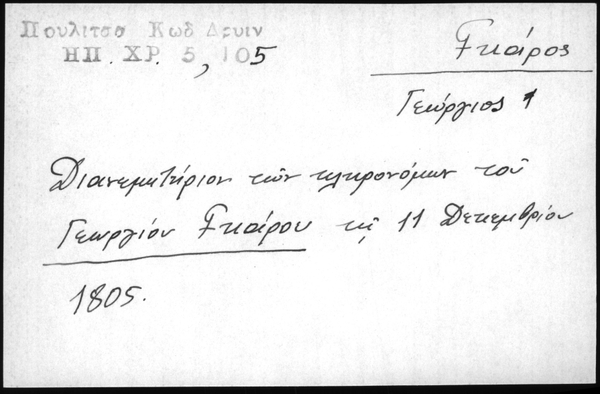 Πουλιτσα Κωδ Δρυιν
ΗΠ. ΧΡ. 5, 105
Γκάρος
Γεώργιος 1
Διανεμητήριον τῶν κληρονόμων τοῦ
Γεωργίου Γκάρου τῇ 11 Δεκεμβρίου
1805.